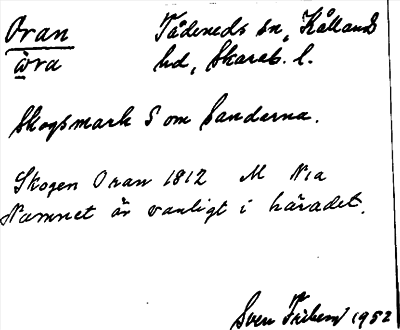 Oran Tådeneds sn, Kållands
òra hd, Skarab. l.
Skogsmark S om Sanderna.
Skogen Oran 1812 M N1a
Namnet är vanligt i häradet.
Sven Friberg 1952